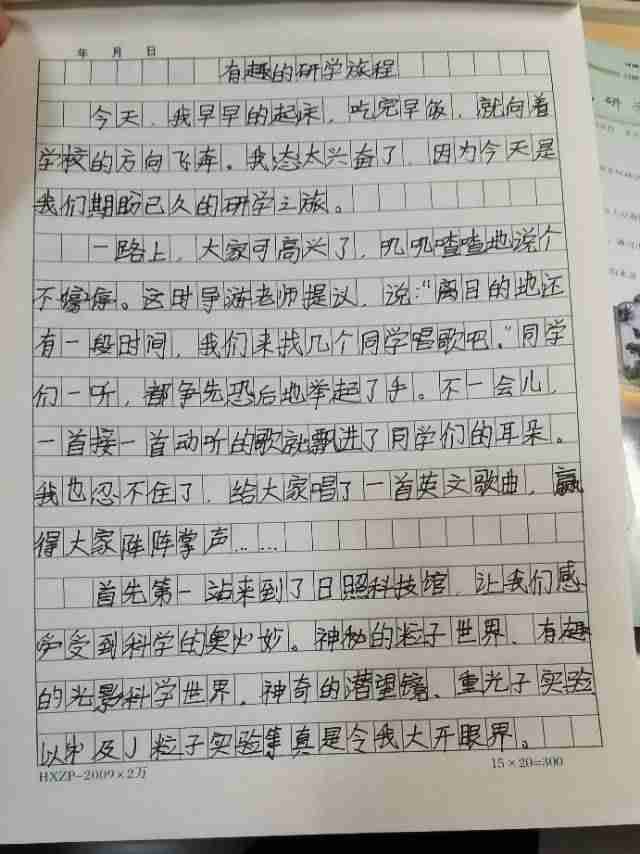 年 月 日
有趣的研学旅程
今天，我早早的起床，吃完早饭，就向着
学校的方向飞奔。我态太兴奋了，因为今天是
我们期盼已久的研学之旅。
一路上，大家可高兴了，叽叽喳喳地说个
不停。这时导游老师提议，说："离目的地还
有一段时间，我们来找几个同学唱歌吧。"同学
们一听，都争先恐后地举起了手。不一会儿，
一首接一首动听的歌就飘进了同学们的耳朵。
我也忍不住了，给大家唱了一首英文歌曲，赢
得大家阵阵掌声……
首先第一站来到了日照科技馆，让我们感
受到科学的奥妙。神秘的粒子世界、有趣
的光影科学世界、神奇的潜望镜、重光子实验
以及J粒子实验等真是令我大开眼界。
HXZP-2009×2万
15×20=300
研